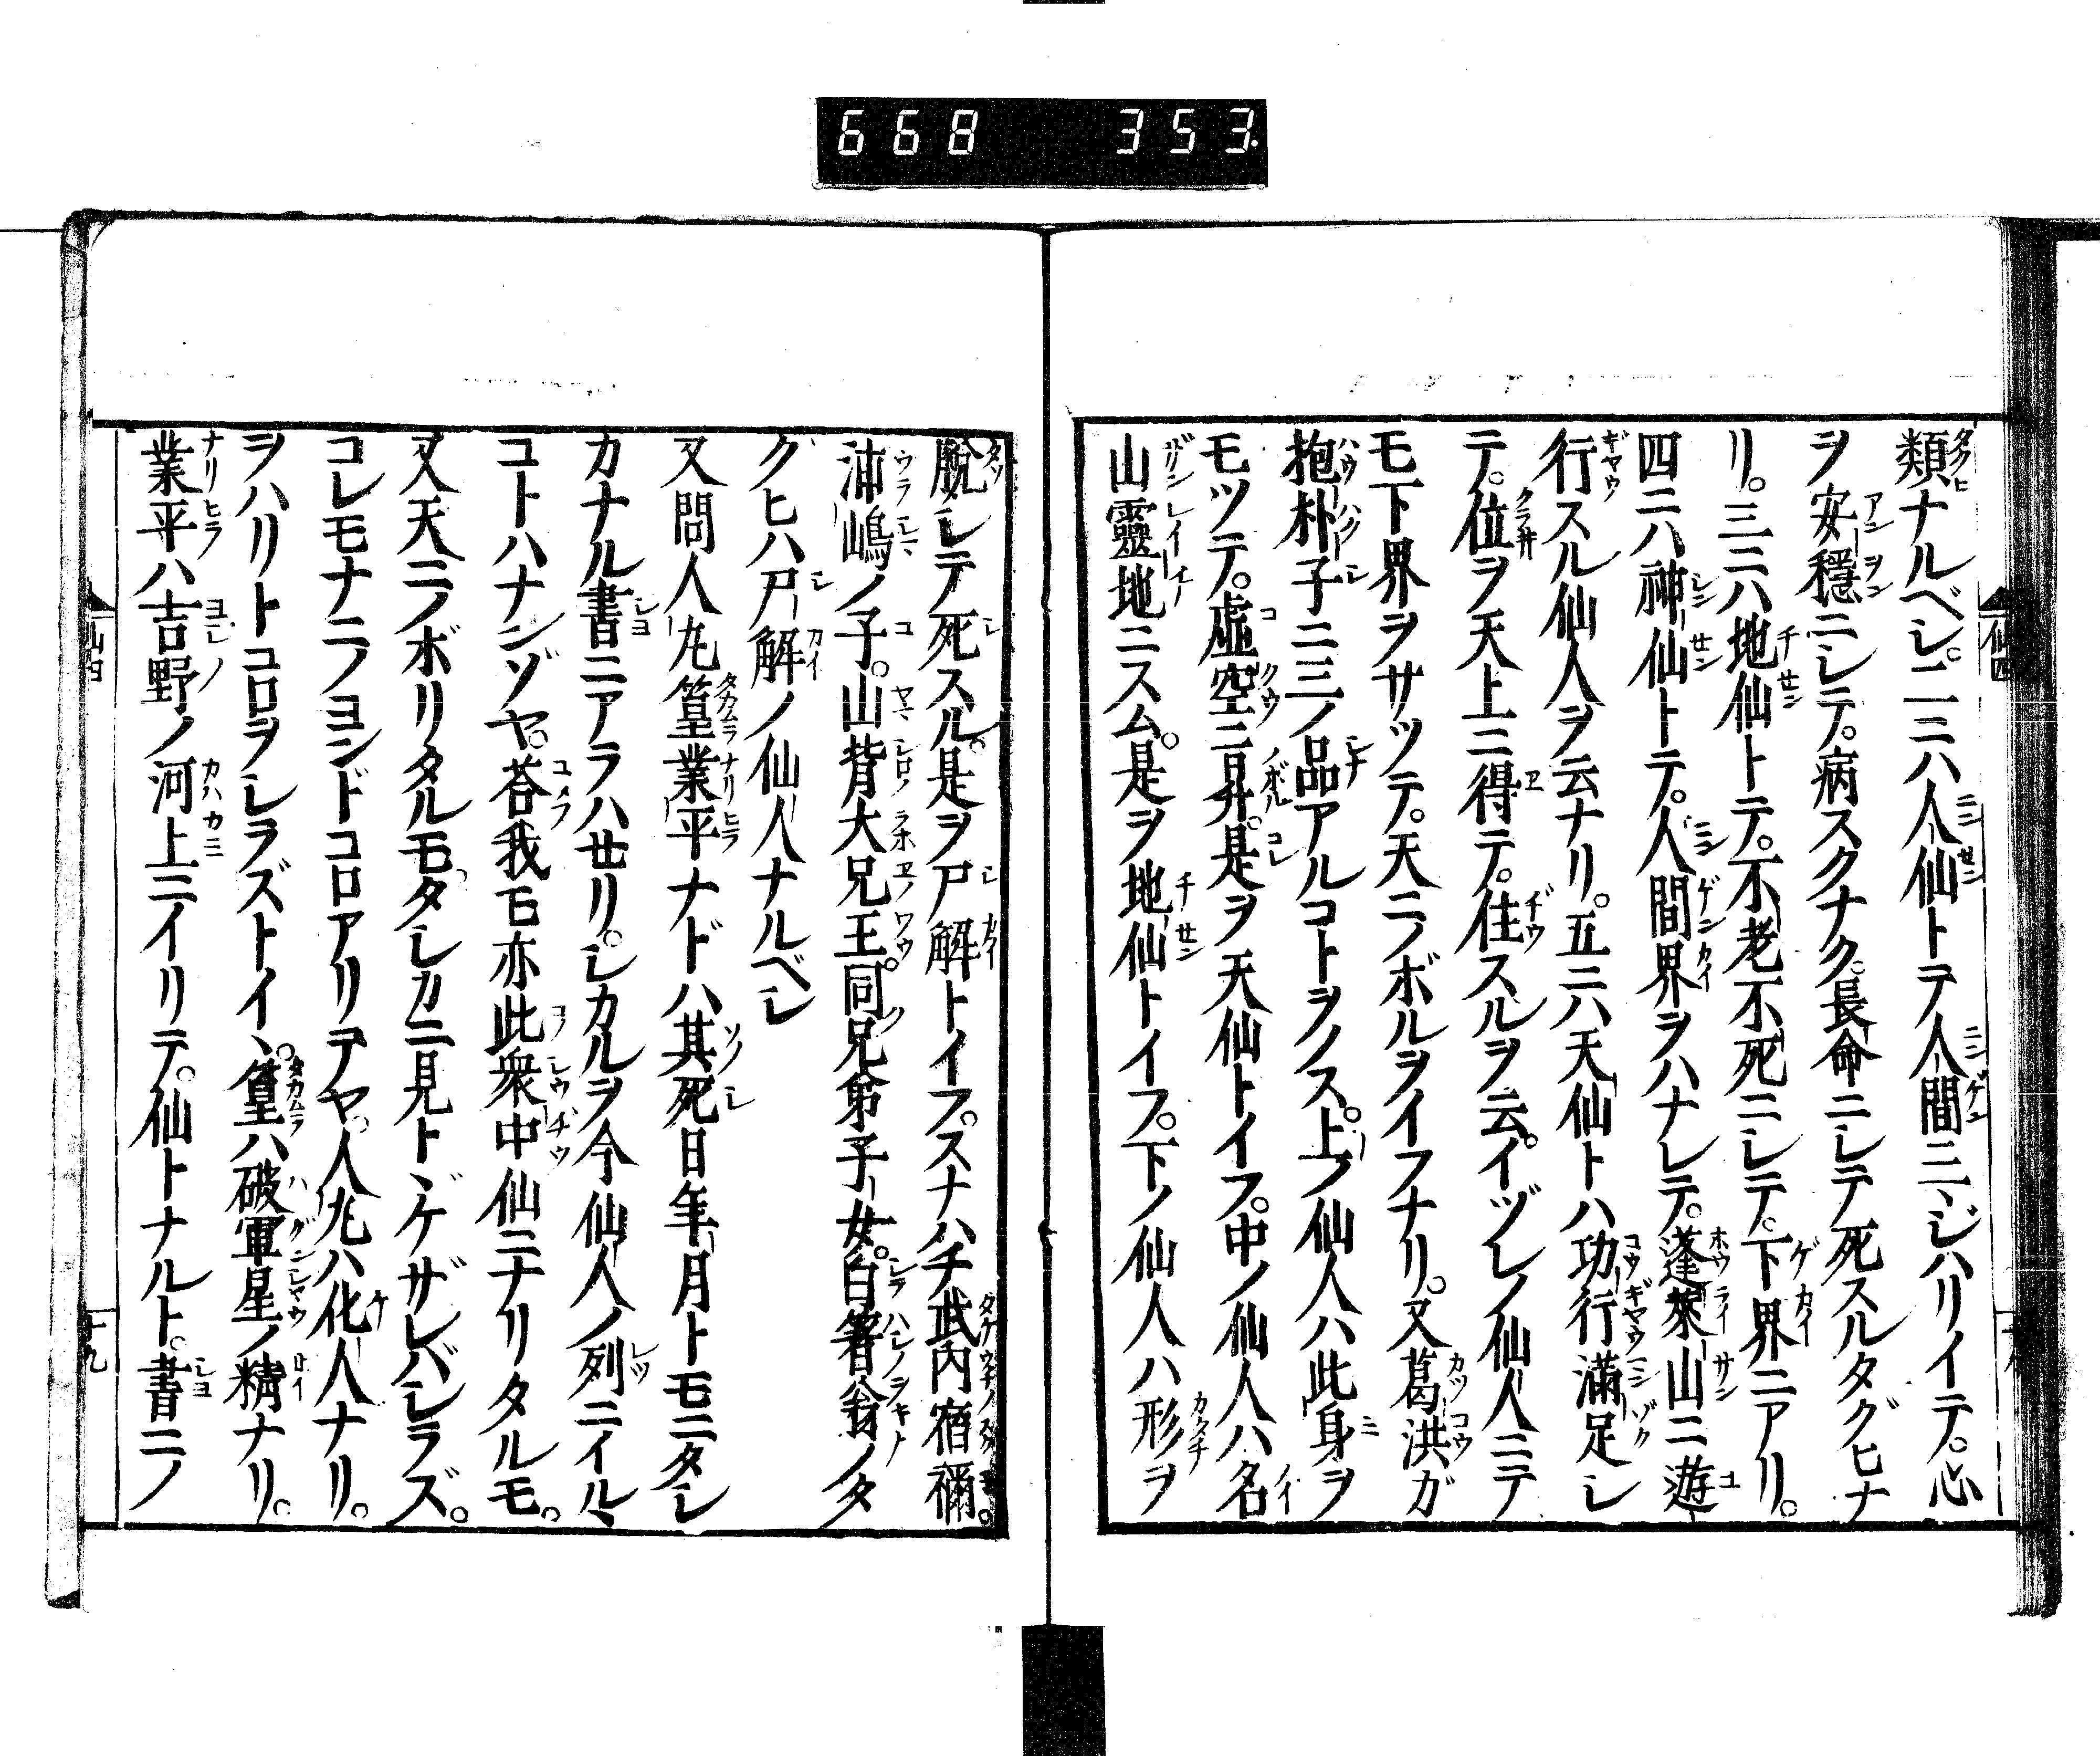 668 353
類ナルベシ。二ニハ人仙トテ人間ニマジハリイテ。心
ヲ安穩ニシテ。病スクナク。長命ニシテ死スルタグヒナ
リ。三ニハ地仙トテ。不老不死ニシテ。下界ニアリ。
四ニハ神仙トテ。人間界ヲハナレテ。蓬萊山ニ遊
行スル仙人ヲ云ナリ。五ニハ天仙トハ功行滿足シ
テ。位ヲ天上ニ得テ。住スルヲ云。イヅレノ仙人ニテ
モ下界ヲサツテ。天ニノボルヲイフナリ。又葛洪ガ
抱朴子ニ三ノ品アルコトヲノス。上ノ仙人ハ此身ヲ
モツテ。虛空ニ昇。是ヲ天仙トイフ。中ノ仙人ハ名
山靈地ニスム。是ヲ地仙トイフ。下ノ仙人ハ形ヲ
脫シテ死スル。是ヲ尸解トイフ。スナハチ武內宿禰。
浦嶋ノ子。山背大兄王。同兄弟子女。白箸翁ノタ
グヒハ尸解ノ仙人ナルベシ
又問人丸篁業平ナドハ其死日年月トモニタシ
カナル書ニアラハセリ。シカルヲ今仙人ノ列ニイルヽ
コトハナンゾヤ。荅我モ亦此衆中仙ニナリタルモ。
又天ニノボリタルモ。タシカニ見トヾケザレバシラズ。
コレモナニノヨンドコロアリテヤ。人丸ハ化人ナリ。
ヲハリトコロヲシラズトイヽ。篁ハ破軍星ノ精ナリ。
業平ハ吉野ノ河上ニイリテ。仙トナルト。書ニノ
仙四
十九